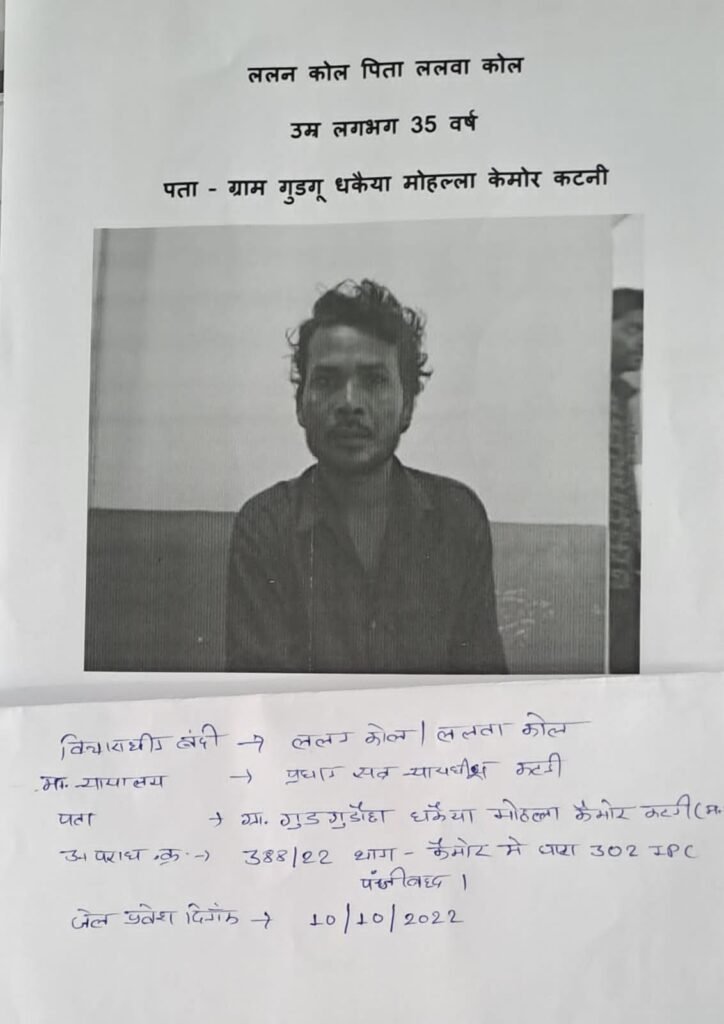 ललन कोल पिता ललवा कोल
उम्र लगभग 35 वर्ष
पता - ग्राम गुडगू धकैया मोहल्ला केमोर कटनी
विचाराधीन बंदी → ललन कोल / ललवा कोल
मा. न्यायालय → प्रधान सत्र न्यायधीश कटनी
पता → ग्रा. गुडगुडौहा धकैया मोहल्ला कैमोर कटनी (म.
अपराध क्र. → 388/22 थाना - कैमोर मे धारा 302 IPC
पंजीबद्ध ।
जेल प्रवेश दिनांक → 10/10/2022